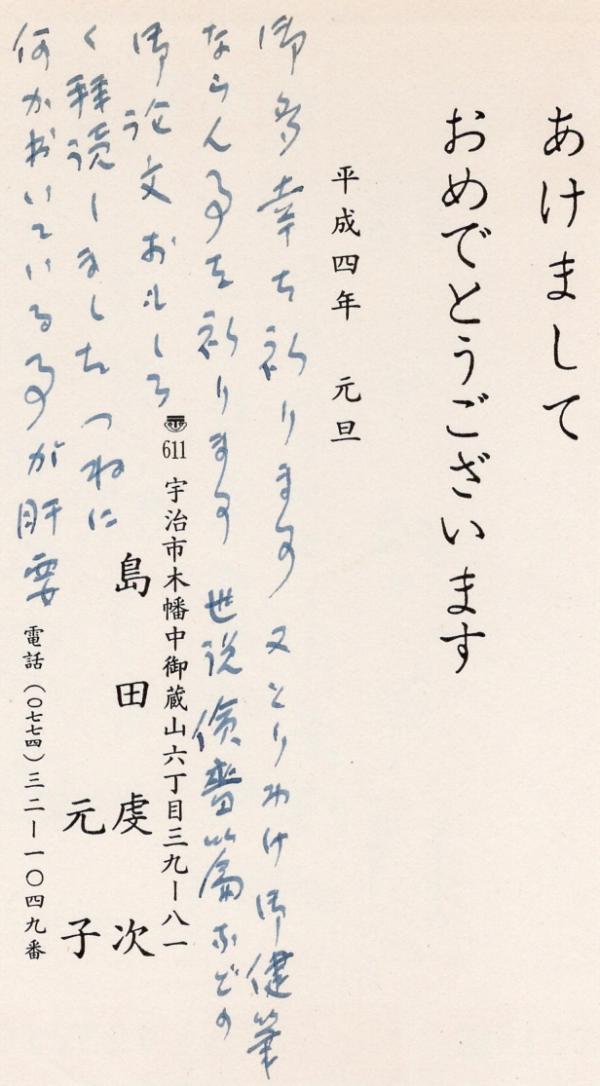 あけまして
おめでとうございます
平成四年 元旦
御多幸を祈ります 又とりわけ御健筆
ならん事を祈ります 世説儉嗇篇などの
御論文おもしろ
く拝読しました つねに
何かおいている事が肝要
〒611 宇治市木幡中御蔵山六丁目三九ー八一
島田虔次
元子
電話(〇七七四)三二ー一〇四九番